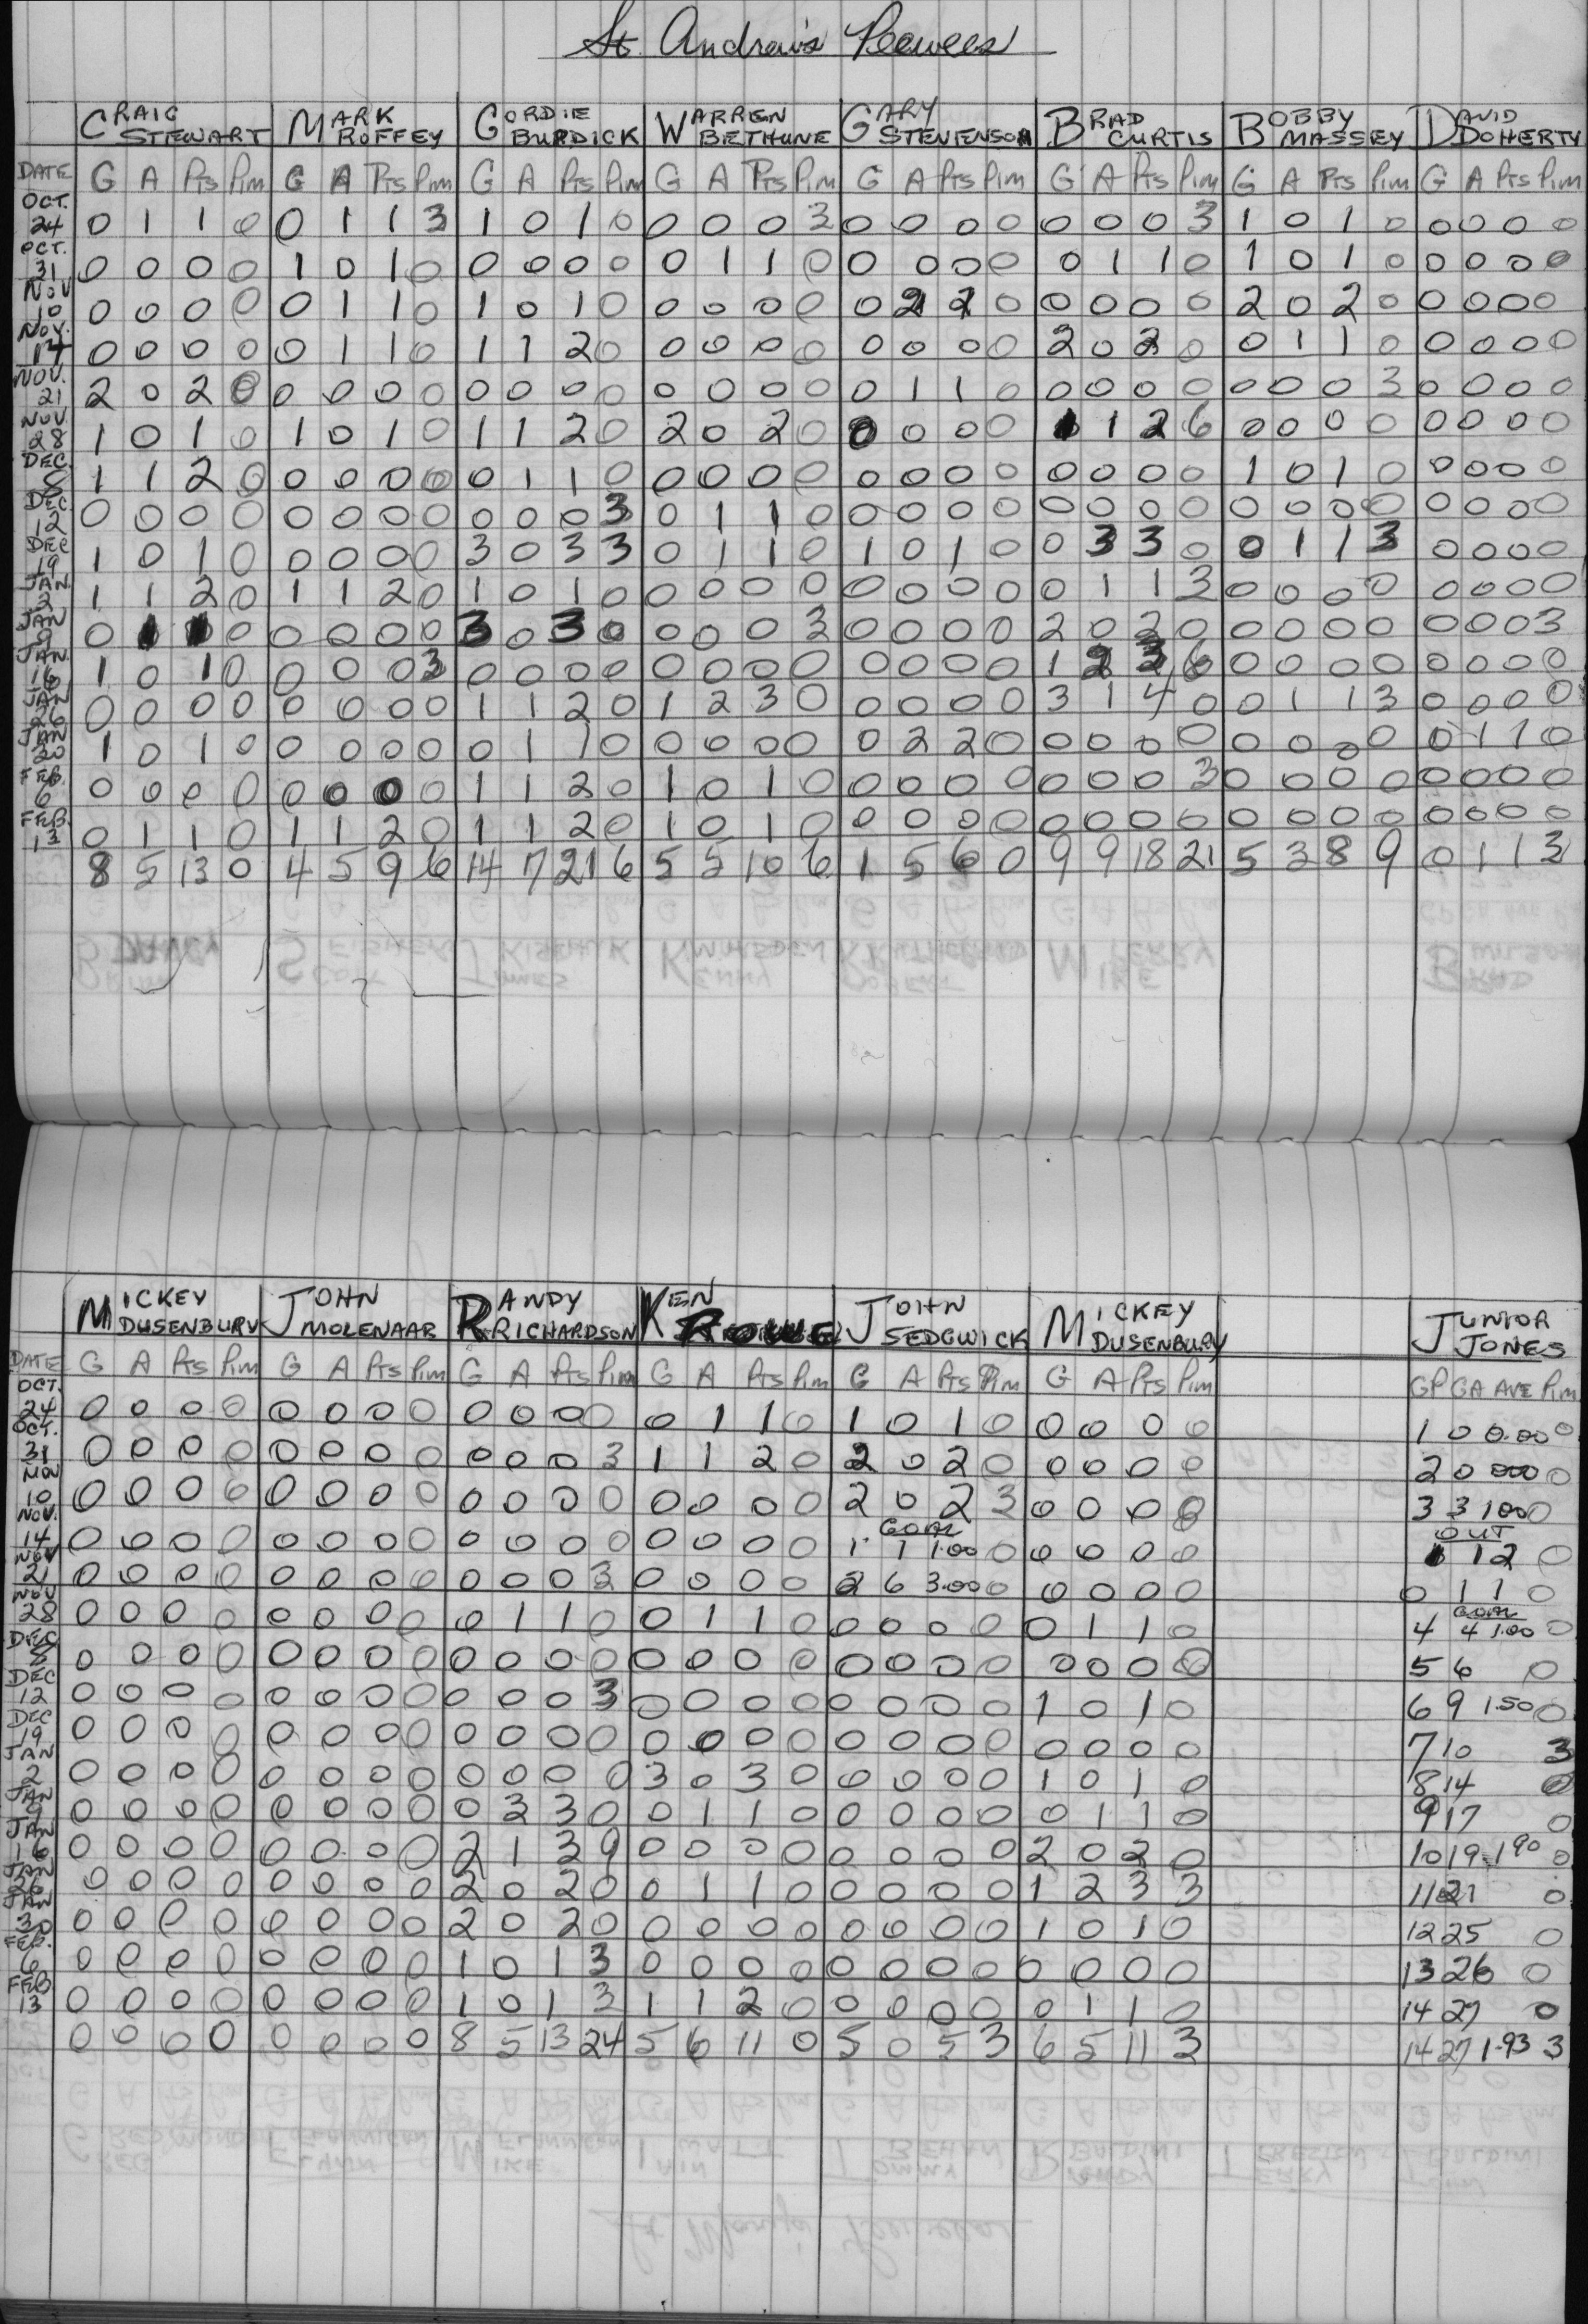 St. Andrew's Peewees
CRAIG STEWART MARK ROFFEY GORDIE BURDICK WARREN BETHUNE GARY STEVENSON BRAD CURTIS BOBBY MASSEY DAVID DOHERTY
DATE G A Pts Pim G A Pts Pim G A Pts Pim G A Pts Pim G A Pts Pim G A Pts Pim G A Pts Pim G A Pts Pim
OCT. 24 0 1 1 0 0 1 1 3 1 0 1 0 0 0 0 3 0 0 0 0 0 0 0 3 1 0 1 0 0 0 0 0
OCT. 31 0 0 0 0 1 0 1 0 0 0 0 0 0 1 1 0 0 0 0 0 0 1 1 0 1 0 1 0 0 0 0 0
NOV 10 0 0 0 0 0 1 1 0 1 0 1 0 0 0 0 0 0 2 2 0 0 0 0 0 2 0 2 0 0 0 0 0
NOV. 14 0 0 0 0 0 1 1 0 1 1 2 0 0 0 0 0 0 0 0 0 2 0 2 0 0 1 1 0 0 0 0 0
NOV. 21 2 0 2 0 0 0 0 0 0 0 0 0 0 0 0 0 0 1 1 0 0 0 0 0 0 0 0 3 0 0 0 0
NOV 28 1 0 1 0 1 0 1 0 1 1 2 0 2 0 2 0 0 0 0 0 1 1 2 6 0 0 0 0 0 0 0 0
DEC. 5 1 1 2 0 0 0 0 0 0 1 1 0 0 0 0 0 0 0 0 0 0 0 0 0 1 0 1 0 0 0 0 0
DEC. 12 0 0 0 0 0 0 0 0 0 0 0 3 0 1 1 0 0 0 0 0 0 0 0 0 0 0 0 0 0 0 0 0
DEC 19 1 0 1 0 0 0 0 0 3 0 3 3 0 1 1 0 1 0 1 0 0 3 3 0 0 1 1 3 0 0 0 0
JAN 2 1 1 2 0 1 1 2 0 1 0 1 0 0 0 0 0 0 0 0 0 0 1 1 3 0 0 0 0 0 0 0 0
JAN 9 0 1 1 0 0 0 0 0 3 0 3 0 0 0 0 3 0 0 0 0 2 0 2 0 0 0 0 0 0 0 0 3
JAN. 16 1 0 1 0 0 0 0 3 0 0 0 0 0 0 0 0 0 0 0 0 1 2 3 6 0 0 0 0 0 0 0 0
JAN 26 0 0 0 0 0 0 0 0 1 1 2 0 1 2 3 0 0 0 0 0 3 1 4 0 0 1 1 3 0 0 0 0
JAN 30 1 0 1 0 0 0 0 0 0 1 1 0 0 0 0 0 0 2 2 0 0 0 0 0 0 0 0 0 0 1 1 0
FEB. 6 0 0 0 0 0 0 0 0 1 1 2 0 1 0 1 0 0 0 0 0 0 0 0 3 0 0 0 0 0 0 0 0
FEB. 13 0 1 1 0 1 1 2 0 1 1 2 0 1 0 1 0 0 0 0 0 0 0 0 0 0 0 0 0 0 0 0 0
8 5 13 0 4 5 9 6 14 7 21 6 5 5 10 6 1 5 6 0 9 9 18 21 5 3 8 9 0 1 1 3
MICKEY DUSENBURY JOHN MOLENAAR RANDY RICHARDSON KEN ROWE JOHN SEDGWICK MICKEY DUSENBURY JUNIOR JONES
DATE G A Pts Pim G A Pts Pim G A Pts Pim G A Pts Pim G A Pts Pim G A Pts Pim GP GA AVE Pim
OCT. 24 0 0 0 0 0 0 0 0 0 0 0 0 0 1 1 0 1 0 1 0 0 0 0 0 1 0 0.00 0
OCT. 31 0 0 0 0 0 0 0 0 0 0 0 3 1 1 2 0 2 0 2 0 0 0 0 0 2 0 000 0
NOV 10 0 0 0 0 0 0 0 0 0 0 0 0 0 0 0 0 2 0 2 3 0 0 0 0 3 3 100 0
GOAL OUT
NOV. 14 0 0 0 0 0 0 0 0 0 0 0 0 0 0 0 0 1 1 1.00 0 0 0 0 0 1 1 2 0
NOV 21 0 0 0 0 0 0 0 0 0 0 0 3 0 0 0 0 2 6 3.00 0 0 0 0 0 0 1 1 0
GOAL
NOV 28 0 0 0 0 0 0 0 0 0 1 1 0 0 1 1 0 0 0 0 0 0 1 1 0 4 4 1.00 0
DEC 5 0 0 0 0 0 0 0 0 0 0 0 0 0 0 0 0 0 0 0 0 0 0 0 0 5 6 0
DEC 12 0 0 0 0 0 0 0 0 0 0 0 3 0 0 0 0 0 0 0 0 1 0 1 0 6 9 1.50 0
DEC 19 0 0 0 0 0 0 0 0 0 0 0 0 0 0 0 0 0 0 0 0 0 0 0 0 7 10 3
JAN 2 0 0 0 0 0 0 0 0 0 0 0 0 3 0 3 0 0 0 0 0 1 0 1 0 8 14 0
JAN 9 0 0 0 0 0 0 0 0 0 3 3 0 0 1 1 0 0 0 0 0 0 1 1 0 9 17 0
JAN 16 0 0 0 0 0 0 0 0 2 1 3 9 0 0 0 0 0 0 0 0 2 0 2 0 10 19 1.90 0
JAN 26 0 0 0 0 0 0 0 0 2 0 2 0 0 1 1 0 0 0 0 0 1 2 3 3 11 21 0
JAN 30 0 0 0 0 0 0 0 0 2 0 2 0 0 0 0 0 0 0 0 0 1 0 1 0 12 25 0
FEB. 6 0 0 0 0 0 0 0 0 1 0 1 3 0 0 0 0 0 0 0 0 0 0 0 0 13 26 0
FEB 13 0 0 0 0 0 0 0 0 1 0 1 3 1 1 2 0 0 0 0 0 0 1 1 0 14 27 0
0 0 0 0 0 0 0 0 8 5 13 24 5 6 11 0 5 0 5 3 6 5 11 3 14 27 1.93 3